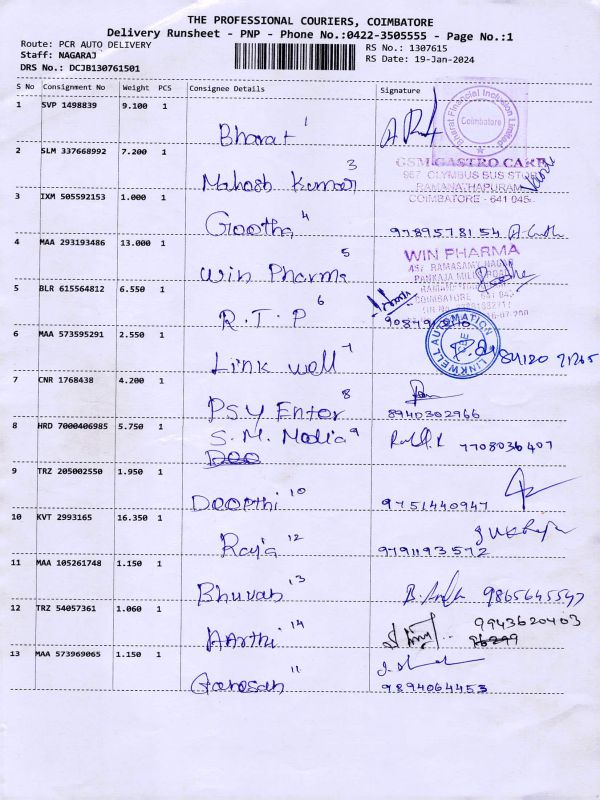 THE PROFESSIONAL COURIERS, COIMBATORE
Delivery Runsheet - PNP - Phone No.:0422-3505555 - Page No.:1
Route: PCR AUTO DELIVERY
RS No.: 1307615
Staff: NAGARAJ
RS Date: 19-Jan-2024
DRS No.: DCJB130761501
S No Consignment No Weight PCS Consignee Details Signature
1 SVP 1498839 9.100 1
Bharat 1
Bharat Financial Inclusion Limited
Coimbatore
2 SLM 337668992 7.200 1
Mahesh Kumar 3
GSM GASTRO CARE
967 OLYMBUS BUS STOP
RAMANATHAPURAM
COIMBATORE - 641 045
3 IXM 505592153 1.000 1
Geetha 4
9789578154
4 MAA 293193486 13.000 1
Win Pharma 5
WIN PHARMA
5 BLR 615564812 6.550 1
R.T.P 6
COIMBATORE 641 045
6 MAA 573595291 2.550 1
Link well 7
LINKWELL AUTOMATION
7 CNR 1768438 4.200 1
PSY Enter 8
8940302966
8 HRD 7000406985 5.750 1
S.M. Media 9
7708036407
9 TRZ 205002550 1.950 1
Deepthi 10
9751440947
10 KVT 2993165 16.350 1
Raja 12
9791193572
11 MAA 105261748 1.150 1
Bhuvan 13
9865645547
12 TRZ 54057361 1.060 1
AArthi 14
9943620403
13 MAA 573969065 1.150 1
Ganesan 11
9894064453